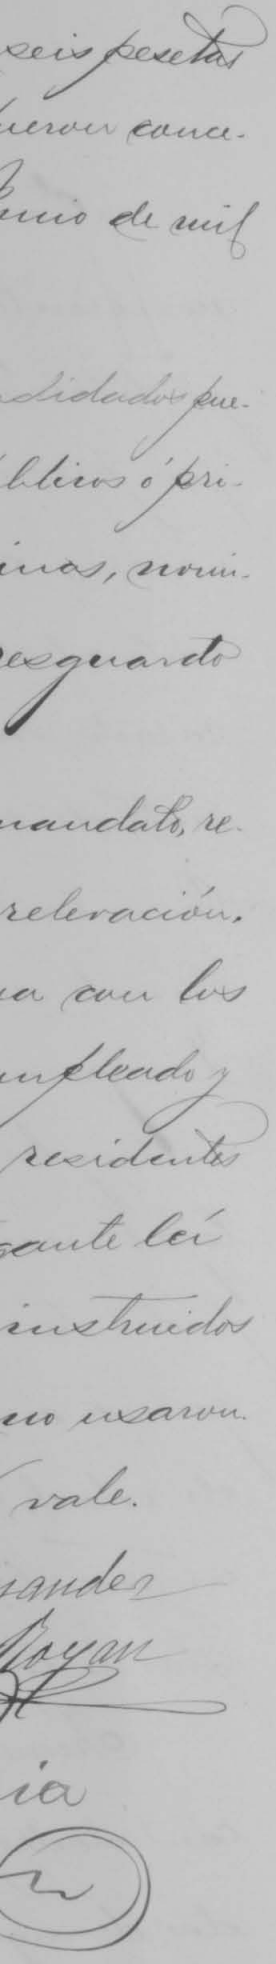 seis pesetas
ueron conce-
unio de mil
didados pue-
úblicos ó pri-
inas, nomi-
resguardo
mandato, re-
relevación.
na con los
empleado y
residentes
gante leí
instruidos
no usaron.
vale.
nandez
Royan
ia